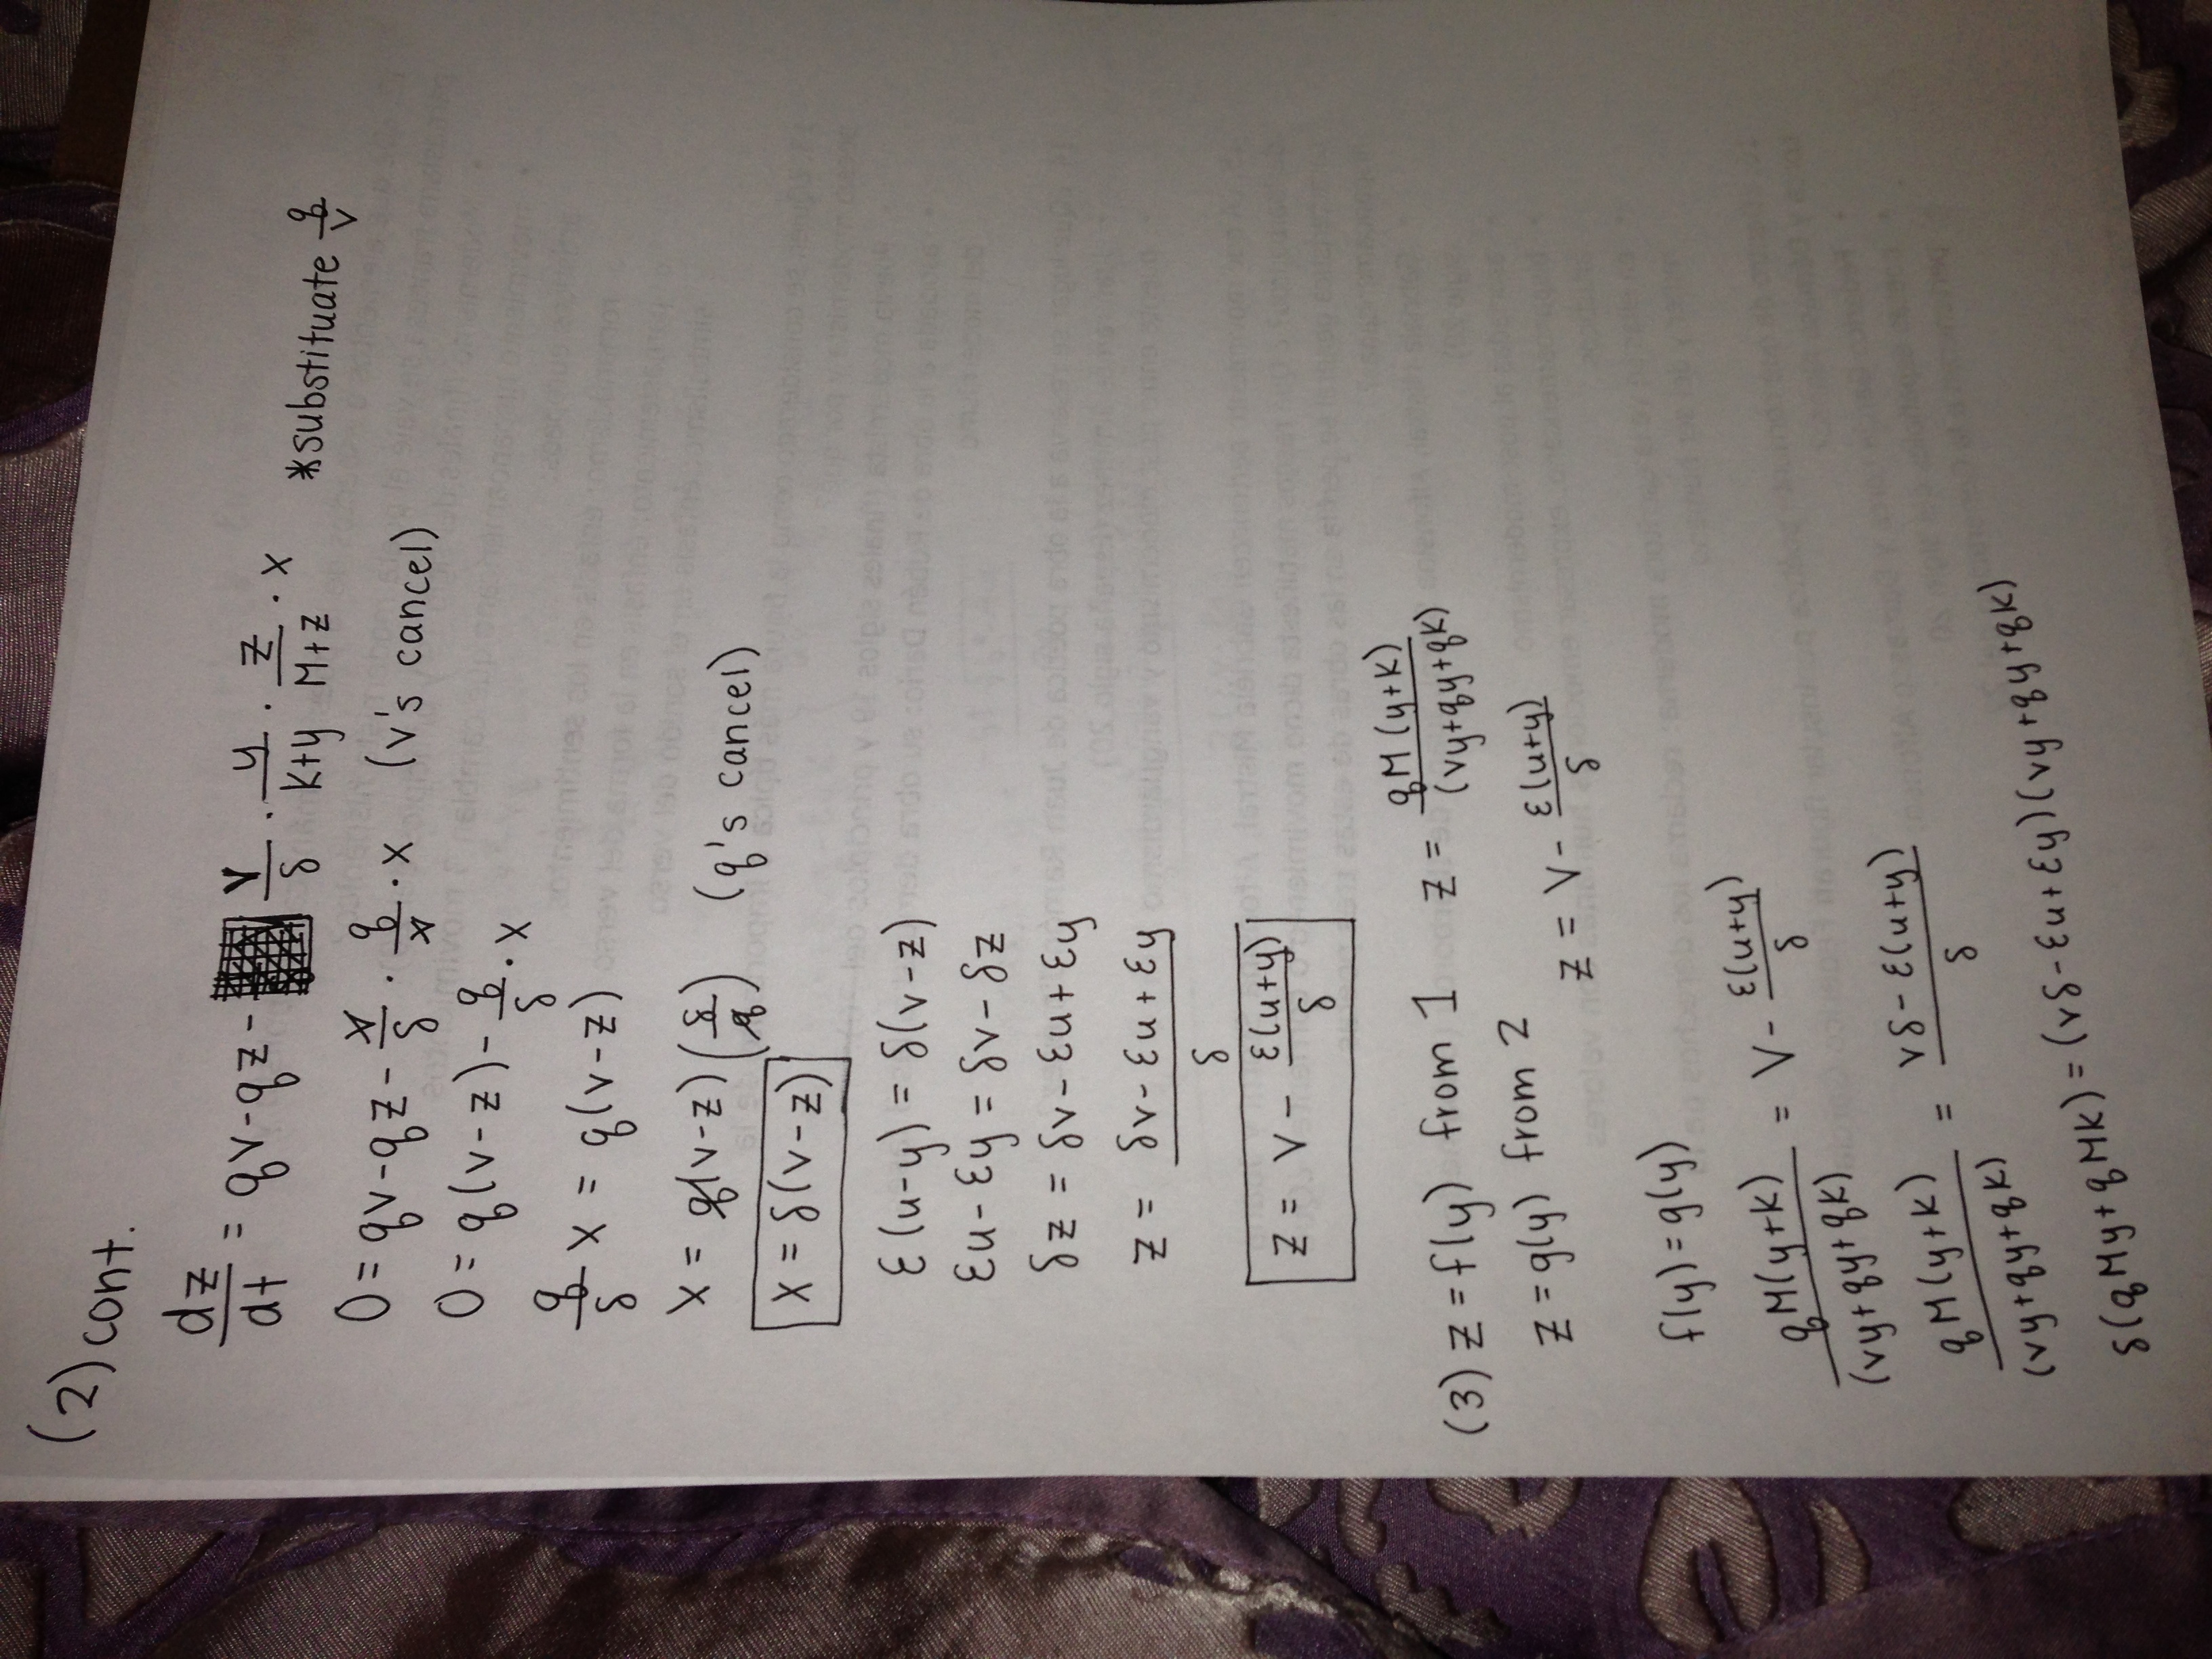 (2) cont.
dz/dt = qv - qz - v/δ · y/K+y · z/M+z · x *substituate q/v
0 = qv - qz - v/δ · q/v · x (v's cancel)
0 = q(v-z) - q/δ · x
q/δ x = q(v-z)
x = q(v-z)(δ/q) (q's cancel)
x = δ(v-z)
ε(u-y) = δ(v-z)
εu - εy = δv - δz
δz = δv - εu + εy
z = δv - εu + εy/δ
z = v - ε(u+y)/δ
(3) z = f(y) from 1 z = qM(y+K)/(vy+qy+qK)
z = g(y) from 2 z = v - ε(u+y)/δ
f(y) = g(y)
qM(y+K)/(vy+qy+qK) = v - ε(u+y)/δ
qM(y+K)/(vy+qy+qK) = vδ - ε(u+y)/δ
δ(qMy+qMK) = (vδ-εu+εy)(vy+qy+qK)